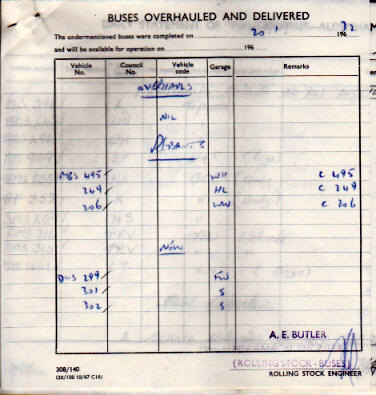 BUSES OVERHAULED AND DELIVERED
The undermentioned buses were completed on 20 . 1 196 72
and will be available for operation on 196
Vehicle No. Council No. Vehicle code Garage Remarks
OVERHAULS
NIL
REPAINTS
MBS 495 WH C 495
249 HL C 249
206 C 206
NEW
DMS 299 FW
301 S
302 S
A. E. BUTLER
(ROLLING STOCK - BUSES)
ROLLING STOCK ENGINEER
308/140
(20/150 10/67 C16)